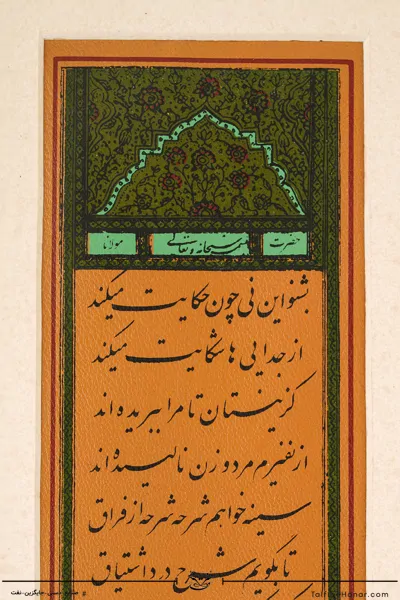 حضرت بسمه سبحانه و تعالی مولانا
بشنو این نی چون حکایت میکند
از جدایی ها شکایت میکند
کز نیستان تا مرا ببریده اند
از نفیرم مرد و زن نالیده اند
سینه خواهم شرحه شرحه از فراق
تا بگویم شرح درد اشتیاق
# صنایع-دستی-جایگزین-نفت